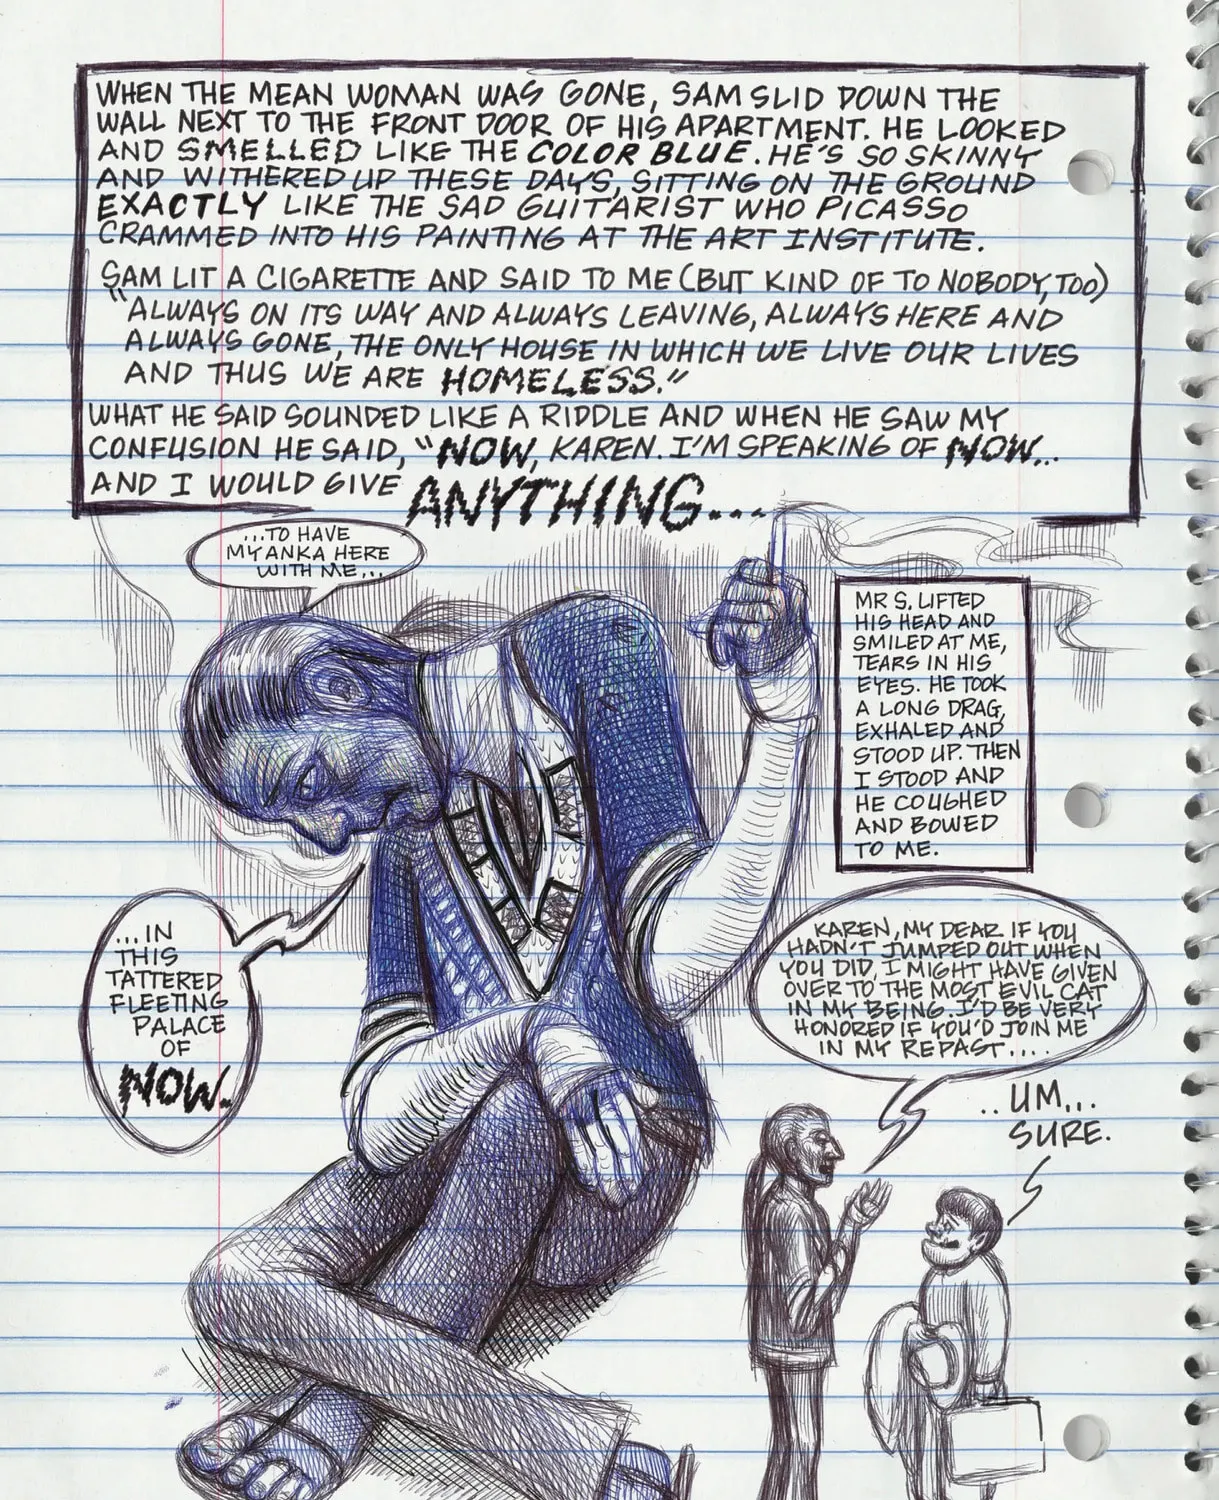 WHEN THE MEAN WOMAN WAS GONE, SAM SLID DOWN THE
WALL NEXT TO THE FRONT DOOR OF HIS APARTMENT. HE LOOKED
AND SMELLED LIKE THE COLOR BLUE. HE'S SO SKINNY
AND WITHERED UP THESE DAYS, SITTING ON THE GROUND
EXACTLY LIKE THE SAD GUITARIST WHO PICASSO
CRAMMED INTO HIS PAINTING AT THE ART INSTITUTE.
SAM LIT A CIGARETTE AND SAID TO ME (BUT KIND OF TO NOBODY, TOO)
"ALWAYS ON ITS WAY AND ALWAYS LEAVING, ALWAYS HERE AND
ALWAYS GONE, THE ONLY HOUSE IN WHICH WE LIVE OUR LIVES
AND THUS WE ARE HOMELESS."
WHAT HE SAID SOUNDED LIKE A RIDDLE AND WHEN HE SAW MY
CONFUSION HE SAID, "NOW, KAREN. I'M SPEAKING OF NOW...
AND I WOULD GIVE ANYTHING...
...TO HAVE
MY ANKA HERE
WITH ME...
...IN
THIS
TATTERED
FLEETING
PALACE
OF
NOW.
MR S. LIFTED
HIS HEAD AND
SMILED AT ME,
TEARS IN HIS
EYES. HE TOOK
A LONG DRAG,
EXHALED AND
STOOD UP. THEN
I STOOD AND
HE COUGHED
AND BOWED
TO ME.
KAREN, MY DEAR IF YOU
HADN'T JUMPED OUT WHEN
YOU DID, I MIGHT HAVE GIVEN
OVER TO THE MOST EVIL CAT
IN MY BEING. I'D BE VERY
HONORED IF YOU'D JOIN ME
IN MY REPAST....
..UM...
SURE.